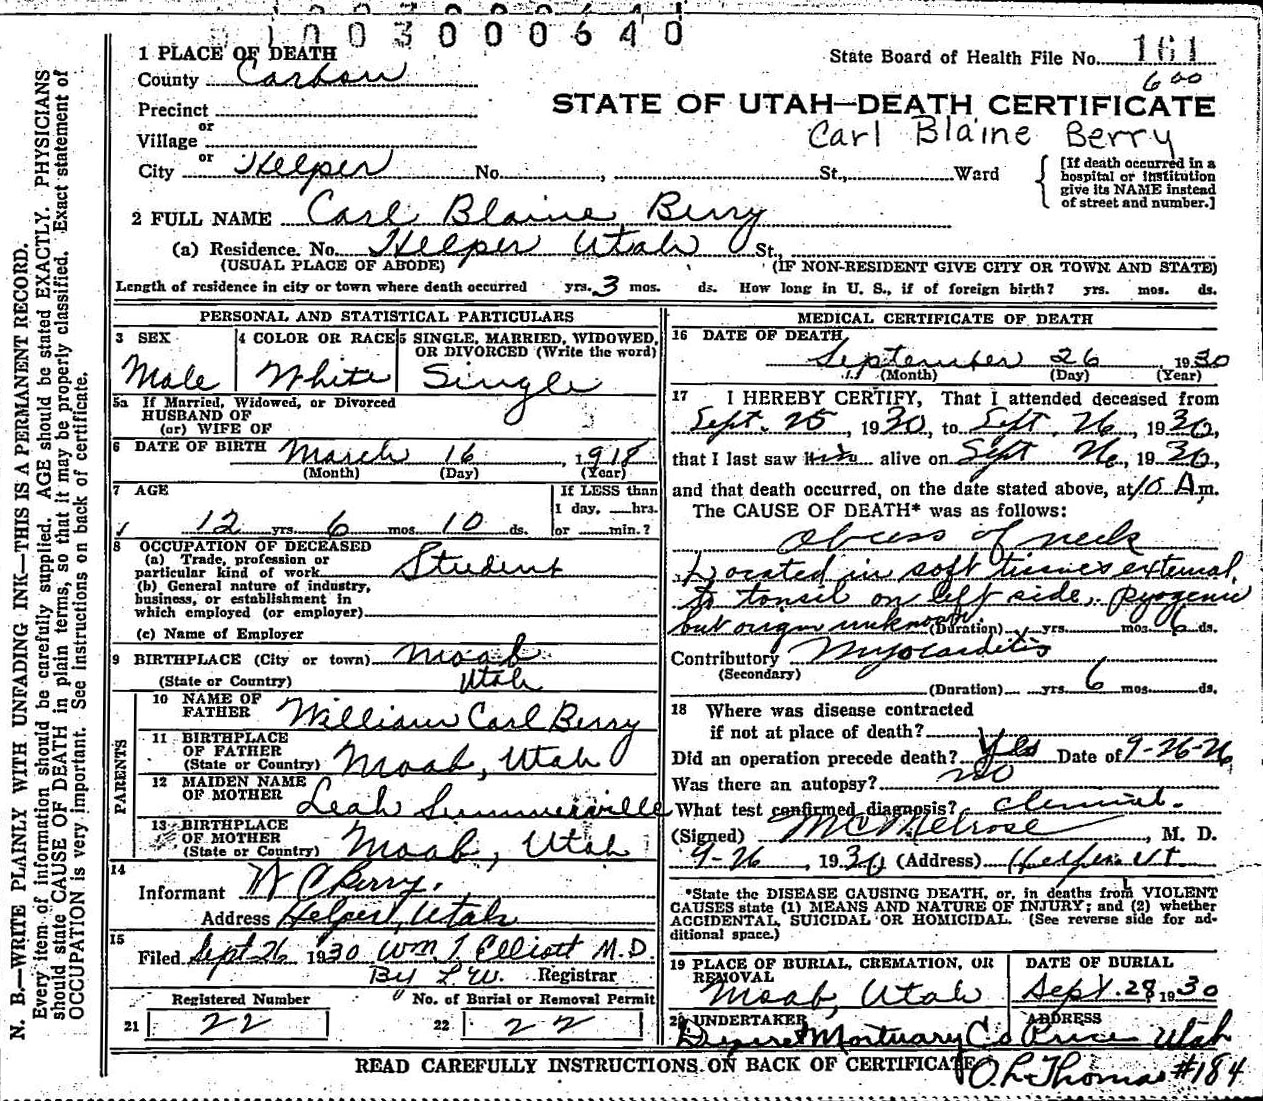 1003000640
1 PLACE OF DEATH
State Board of Health File No. 161
County Carbon
600
STATE OF UTAH—DEATH CERTIFICATE
Precinct
Carl Blaine Berry
or
Village
or
City Helper No. , St., Ward
[If death occurred in a hospital or institution give its NAME instead of street and number.]
2 FULL NAME Carl Blaine Berry
(a) Residence. No. Helper Utah St.,
(USUAL PLACE OF ABODE) (IF NON-RESIDENT GIVE CITY OR TOWN AND STATE)
Length of residence in city or town where death occurred yrs. 3 mos. ds. How long in U. S., if of foreign birth? yrs. mos. ds.
PERSONAL AND STATISTICAL PARTICULARS
3 SEX Male
4 COLOR OR RACE White
5 SINGLE, MARRIED, WIDOWED, OR DIVORCED (Write the word) Single
5a If Married, Widowed, or Divorced
HUSBAND OF
(or) WIFE OF
6 DATE OF BIRTH March 16, 1918
(Month) (Day) (Year)
7 AGE
12 yrs. 6 mos. 10 ds.
If LESS than
1 day, hrs.
or min.?
8 OCCUPATION OF DECEASED
(a) Trade, profession or
particular kind of work Student
(b) General nature of industry,
business, or establishment in
which employed (or employer)
(c) Name of Employer
9 BIRTHPLACE (City or town) Moab
(State or Country) Utah
PARENTS
10 NAME OF FATHER William Carl Berry
11 BIRTHPLACE OF FATHER (State or Country) Moab, Utah
12 MAIDEN NAME OF MOTHER Leah Summerville
13 BIRTHPLACE OF MOTHER (State or Country) Moab, Utah
14
Informant W C Berry.
Address Helper, Utah
15
Filed Sept 26 1930 Wm. T. Elliott M.D.
By L W. Registrar
Registered Number No. of Burial or Removal Permit
21 22 22 22
MEDICAL CERTIFICATE OF DEATH
16 DATE OF DEATH
September 26 1930
(Month) (Day) (Year)
17 I HEREBY CERTIFY, That I attended deceased from
Sept. 25, 1930, to Sept. 26, 1930,
that I last saw him alive on Sept 26, 1930,
and that death occurred, on the date stated above, at 10 A m.
The CAUSE OF DEATH* was as follows:
abcess of neck
Located in soft tissues external
to tonsil on left side, pyogenic
but origin unknown. (Duration) yrs. mos. 6 ds.
Contributory Myocarditis
(Secondary)
(Duration) yrs. 6 mos. ds.
18 Where was disease contracted
if not at place of death?
Did an operation precede death? Yes Date of 9-26-26
Was there an autopsy? no
What test confirmed diagnosis? Clinical.
(Signed) McMelrose, M. D.
9-26, 1930 (Address) Helper Ut.
*State the DISEASE CAUSING DEATH, or, in deaths from VIOLENT
CAUSES state (1) MEANS AND NATURE OF INJURY; and (2) whether
ACCIDENTAL, SUICIDAL OR HOMICIDAL. (See reverse side for ad-
ditional space.)
19 PLACE OF BURIAL, CREMATION, OR REMOVAL Moab, Utah
DATE OF BURIAL Sept. 28, 1930
20 UNDERTAKER Deseret Mortuary Co
ADDRESS Price Utah
READ CAREFULLY INSTRUCTIONS ON BACK OF CERTIFICATE
O. L. Thomas #184
N. B.—WRITE PLAINLY WITH UNFADING INK—THIS IS A PERMANENT RECORD.
Every item of information should be carefully supplied. AGE should be stated EXACTLY. PHYSICIANS
should state CAUSE OF DEATH in plain terms, so that it may be properly classified. Exact statement of
OCCUPATION is very important. See Instructions on back of certificate.